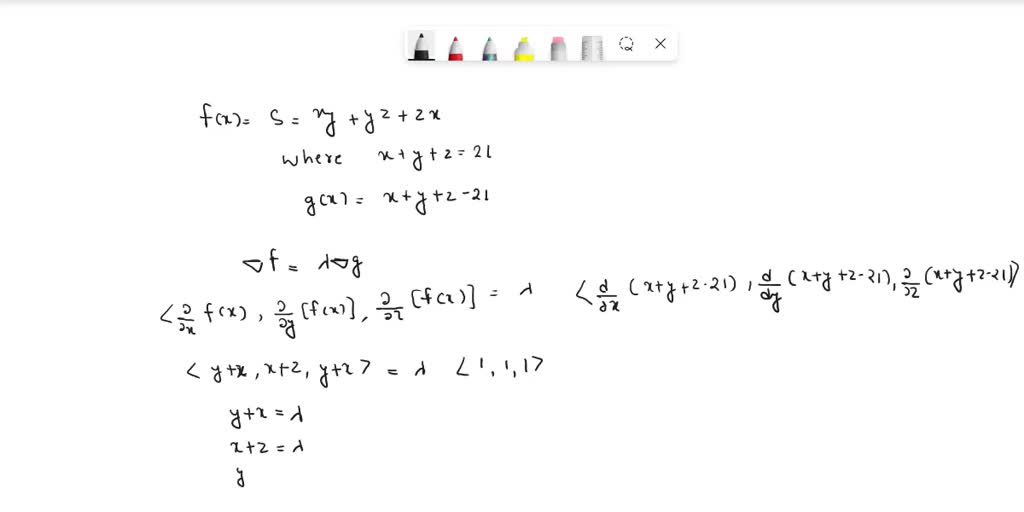 f(x)= S = xy + yz + zx
where x+y+z=21
g(x) = x+y+z-21
∇f = λ∇g
<∂/∂x f(x), ∂/∂y [f(x)], ∂/∂z [f(x)] = λ <d/∂x (x+y+z-21), d/dy (x+y+z-21), ∂/∂z (x+y+z-21)>
< y+x, x+z, y+x > = λ <1, 1, 1>
y+x = λ
x+z = λ
y